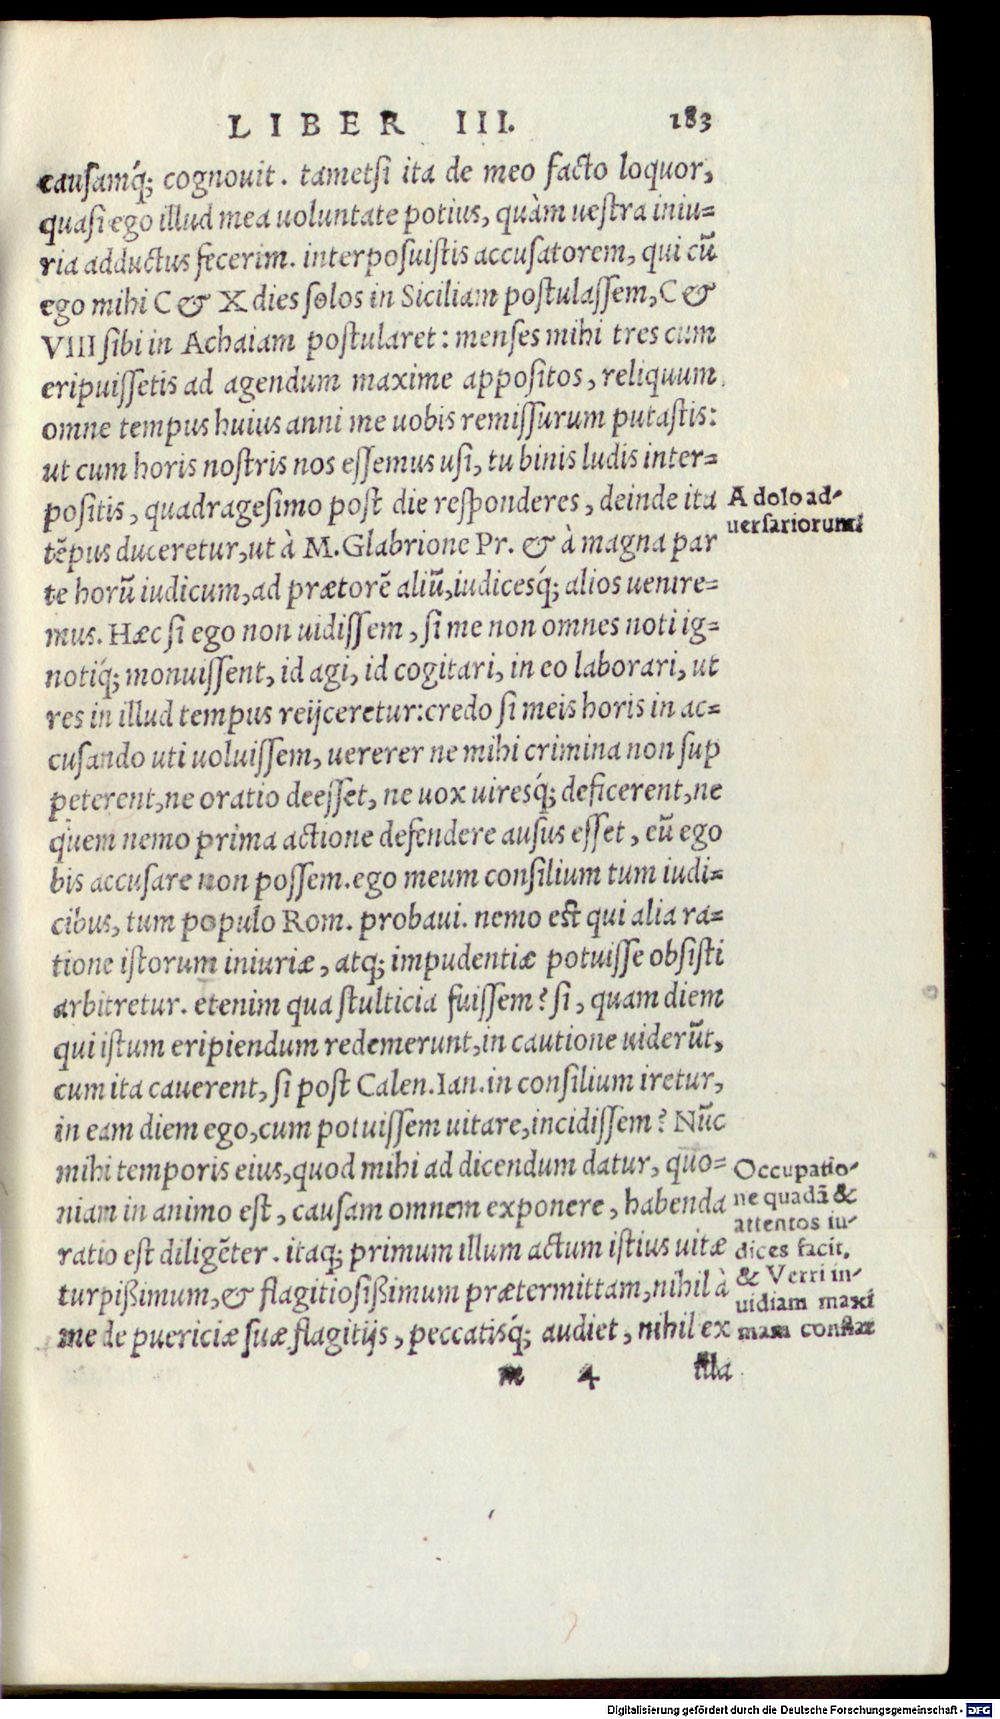 LIBER III. 183
causamq́; cognouit. tametsi ita de meo facto loquor,
quasi ego illud mea uoluntate potius, quàm uestra iniu=
ria adductus fecerim. interposuistis accusatorem, qui cū
ego mihi C & X dies solos in Siciliam postulassem, C &
VIII sibi in Achaiam postularet: menses mihi tres cum
eripuissetis ad agendum maxime appositos, reliquum
omne tempus huius anni me uobis remissurum putastis:
ut cum horis nostris nos essemus usi, tu binis ludis inter=
positis, quadragesimo post die responderes, deinde ita
tēpus duceretur, ut à M. Glabrione Pr. & à magna par
te horū iudicum, ad prætorē aliū, iudicesq́; alios uenire=
mus. Hæc si ego non uidissem, si me non omnes noti ig=
notiq́; monuissent, id agi, id cogitari, in eo laborari, ut
res in illud tempus reijceretur: credo si meis horis in ac=
cusando uti uoluissem, uererer ne mihi crimina non sup
peterent, ne oratio deesset, ne uox uiresq́; deficerent, ne
quem nemo prima actione defendere ausus esset, eū ego
bis accusare non possem. ego meum consilium tum iudi=
cibus, tum populo Rom. probaui. nemo est qui alia ra=
tione istorum iniuriæ, atq; impudentiæ potuisse obsisti
arbitretur. etenim qua stulticia fuissem? si, quam diem
qui istum eripiendum redemerunt, in cautione uiderūt,
cum ita cauerent, si post Calen. Ian. in consilium iretur,
in eam diem ego, cum potuissem uitare, incidissem? Nūc
mihi temporis eius, quod mihi ad dicendum datur, quo=
niam in animo est, causam omnem exponere, habenda
ratio est diligēter. itaq; primum illum actum istius uitæ
turpißimum, & flagitiosißimum prætermittam, nihil à
me de puericiæ suæ flagitijs, peccatisq́; audiet, nihil ex
m 4 illa
A dolo ad-
uersariorum
Occupatio-
ne quadā &
attentos iu-
dices facit,
& Verri in-
uidiam maxi
mam conflat
Digitalisierung gefördert durch die Deutsche Forschungsgemeinschaft - DFG